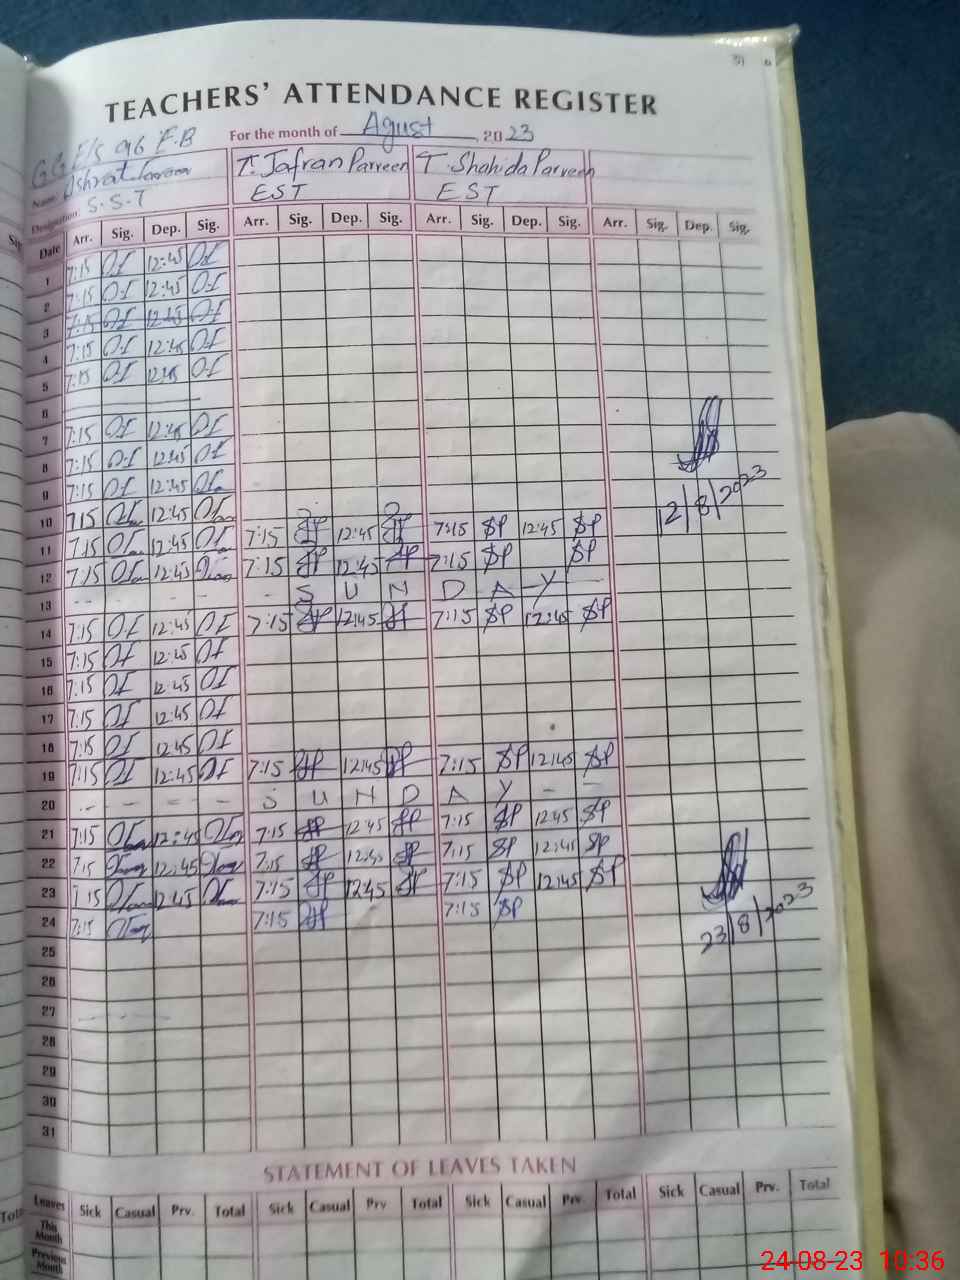 31
TEACHERS' ATTENDANCE REGISTER
For the month of Agust, 2023
96 F.B
Name T. Jafran Parveen T. Shahida Parveen
Designation: S.S.T EST EST
Date Arr. Sig. Dep. Sig. Arr. Sig. Dep. Sig. Arr. Sig. Dep. Sig. Arr. Sig. Dep. Sig.
1 7:15 12:45
2 7:15 12:45
3 7:15 12:45
4 7:15 12:45
5 7:15 12:45
6
7 7:15 12:45
8 7:15 12:45
9 7:15 12:45
10 715 12:45
11 7:15 12:45 7:15 12:45 7:15 SP 12:45 SP
12 7:15 12:45 7:15 12:45 7:15 SP SP
13 - - - - - S U N D A Y -
14 7:15 12:45 7:15 12:45 7:15 SP 12:45 SP
15 7:15 12:45
16 7:15 12:45
17 7:15 12:45
18 7:15 12:45
19 7:15 12:45 7:15 12:45 7:15 SP 12:45 SP
20 - - - - S U N D A Y - -
21 7:15 12:45 7:15 12:45 7:15 SP 12:45 SP
22 7:15 12:45 7:15 12:45 7:15 SP 12:45 SP
23 7:15 12:45 7:15 12:45 7:15 SP 12:45 SP
24 7:15 7:15 7:15 SP
25
26
27
28
29
30
31
12/8/2023
23/8/2023
STATEMENT OF LEAVES TAKEN
Leaves Sick Casual Prv. Total Sick Casual Prv Total Sick Casual Prv. Total Sick Casual Prv. Total
This Month
Previous Month
24-08-23 10:36